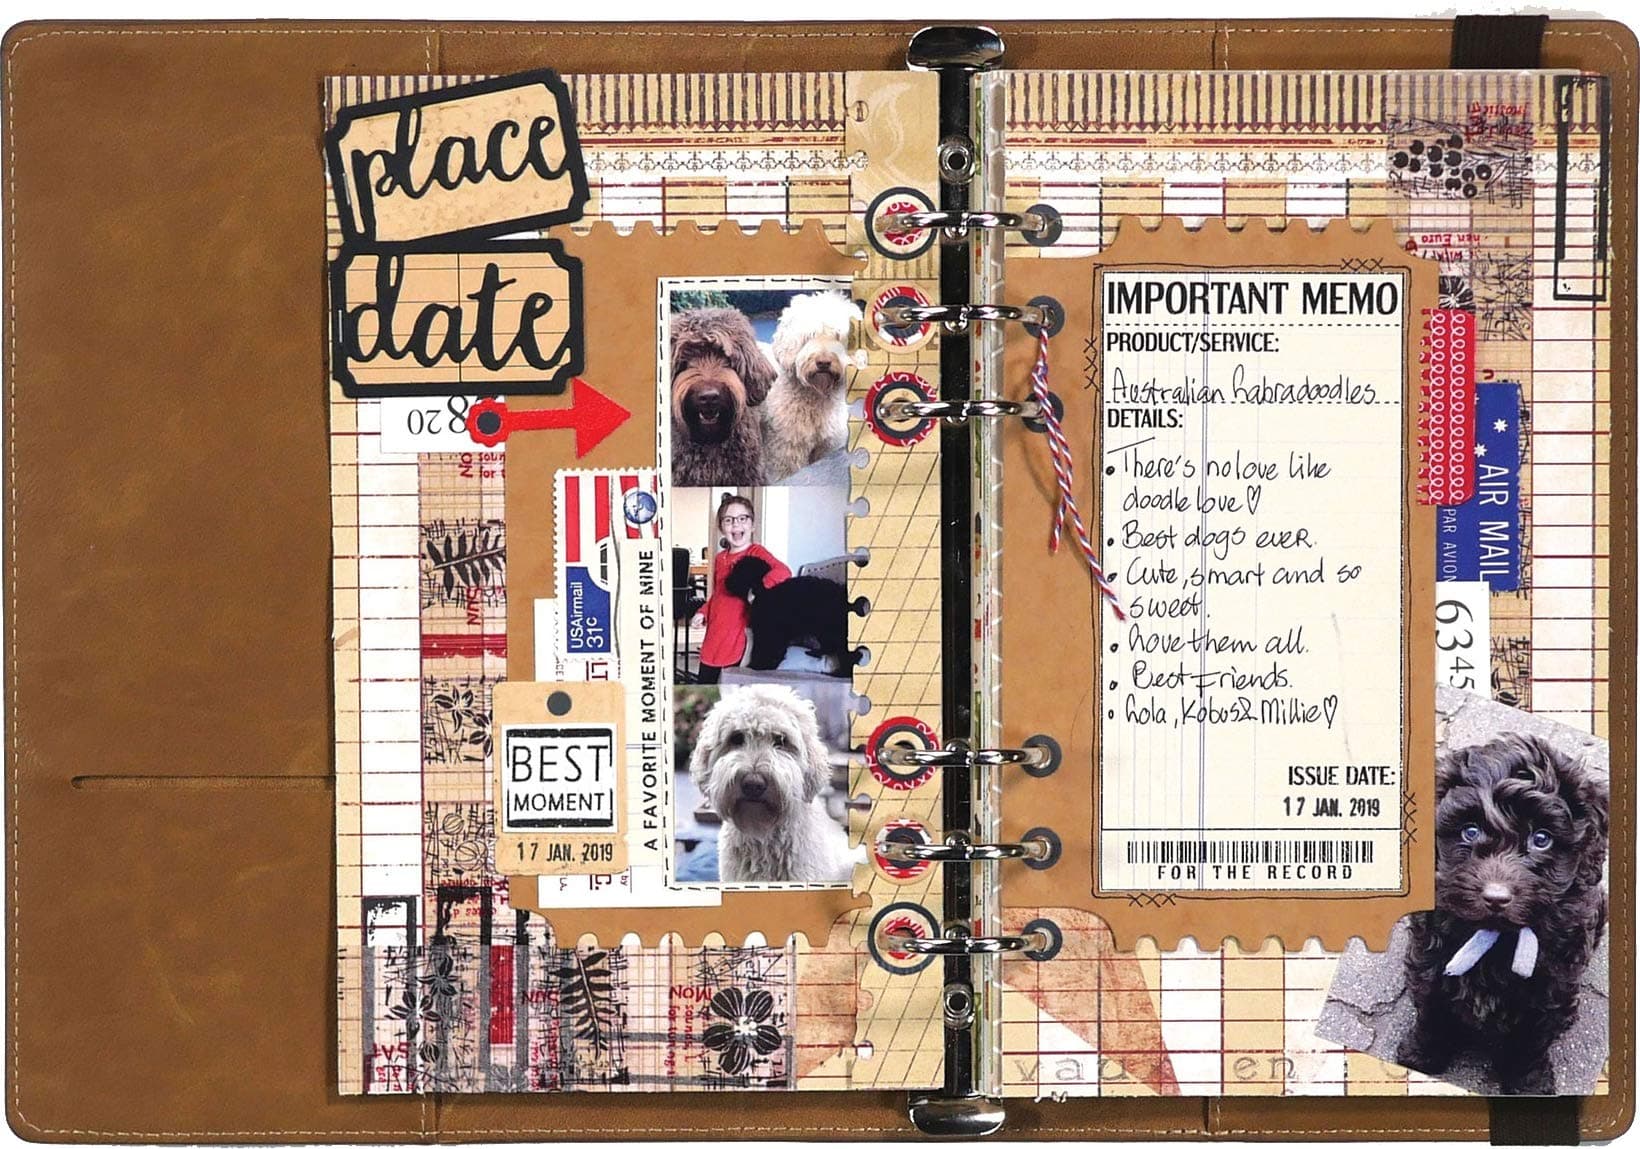 place
date
8 20
USAirmail
31c
A FAVORITE MOMENT OF MINE
BEST
MOMENT
17 JAN. 2019
IMPORTANT MEMO
PRODUCT/SERVICE:
Australian Labradoodles
DETAILS:
• There's no love like
doodle love ♡
• Best dogs ever.
• Cute, smart and so
sweet.
• Love them all.
• Best Friends.
• Lola, Kobus & Millie ♡
ISSUE DATE:
17 JAN. 2019
FOR THE RECORD
AIR MAIL
PAR AVION
6345